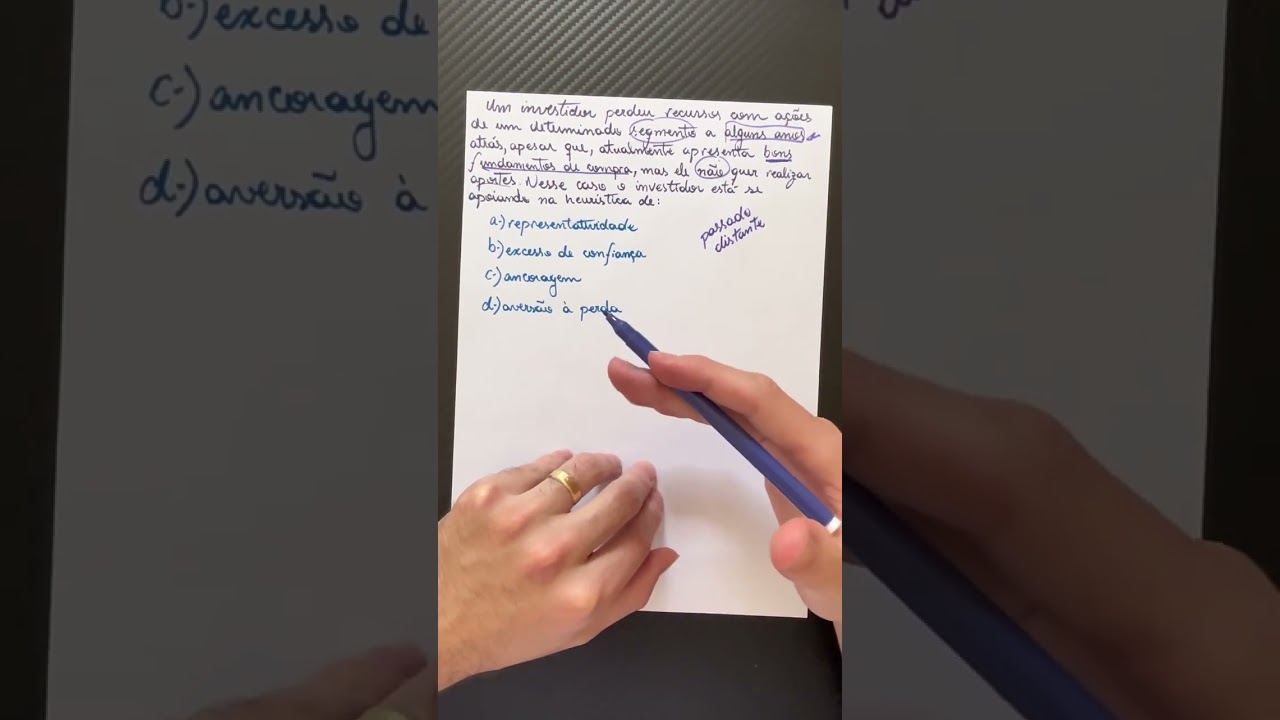 Um investidor perdeu recursos com ações
de um determinado segmento a alguns anos
atrás, apesar que, atualmente apresenta bons
fundamentos de compra, mas ele não quer realizar
aportes. Nesse caso o investidor está se
apoiando na heurística de:
a-) representatividade
b-) excesso de confiança
c-) ancoragem
d-) aversão à perda
passado
distante
b-) excesso de
c-) ancoragem
d-) aversão à